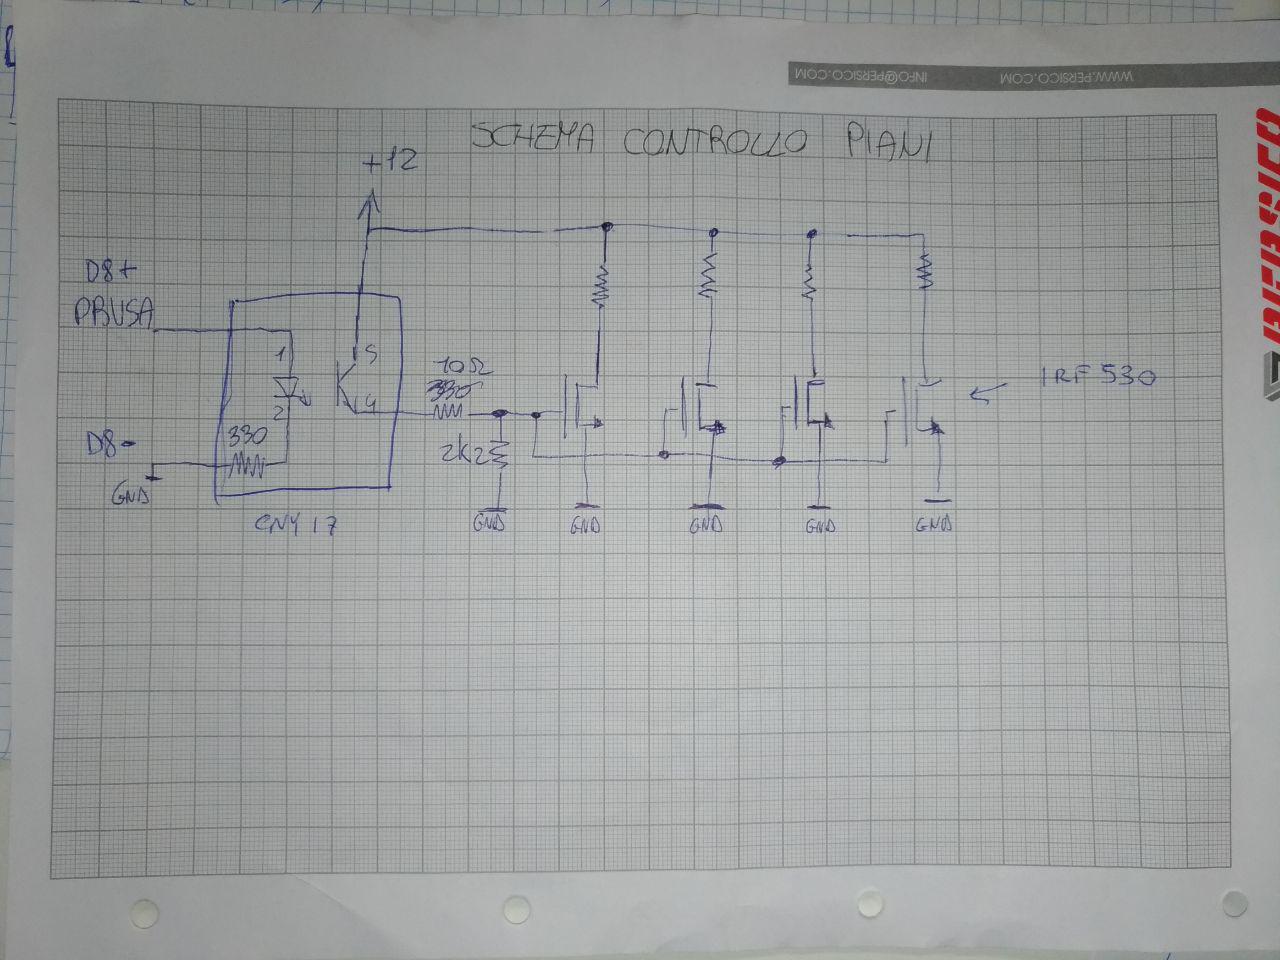 WWW.PERSICO.COM INFO@PERSICO.COM
SCHEMA CONTROLLO PIANI
+12
D8+
PRUSA
1
5
2
4
330
D8-
GND
CNY 17
10Ω
330
2K2
GND
GND
GND
GND
GND
IRF 530